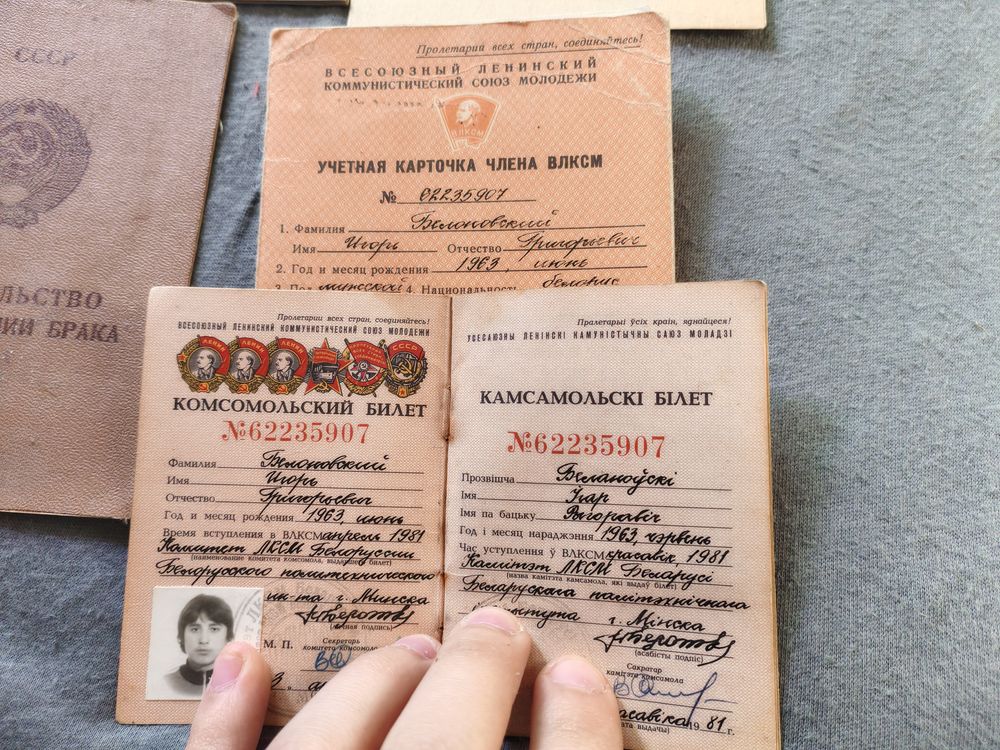 СССР
ЛЬСТВО
ИИ БРАКА
Пролетарии всех стран, соединяйтесь!
ВСЕСОЮЗНЫЙ ЛЕНИНСКИЙ
КОММУНИСТИЧЕСКИЙ СОЮЗ МОЛОДЕЖИ
ВЛКСМ
УЧЕТНАЯ КАРТОЧКА ЧЛЕНА ВЛКСМ
№ 62235907
1. Фамилия Белоновский
Имя Игорь Отчество Григорьевич
2. Год и месяц рождения 1963, июнь
3. Пол мужской 4. Национальность белорус
Пролетарии всех стран, соединяйтесь!
ВСЕСОЮЗНЫЙ ЛЕНИНСКИЙ КОММУНИСТИЧЕСКИЙ СОЮЗ МОЛОДЕЖИ
ЛЕНИН ЛЕНИН ЛЕНИН СССР
КОМСОМОЛЬСКИЙ БИЛЕТ
№62235907
Фамилия Белоновский
Имя Игорь
Отчество Григорьевич
Год и месяц рождения 1963, июнь
Время вступления в ВЛКСМ апрель 1981
Комитет ЛКСМ Белоруссии
(наименование комитета комсомола, выдавшего билет)
Белорусского политехнического
ин-та г. Минска
(личная подпись)
М. П. Секретарь
комитета комсомола
Пралетарыі ўсіх краін, яднайцеся!
УСЕСАЮЗНЫ ЛЕНІНСКІ КАМУНІСТЫЧНЫ САЮЗ МОЛАДЗІ
КАМСАМОЛЬСКІ БІЛЕТ
№62235907
Прозвішча Беланоўскі
Імя Ігар
Імя па бацьку Рыгоравіч
Год і месяц нараджэння 1963, чэрвень
Час уступлення ў ВЛКСМ красавік, 1981
Камітэт ЛКСМ Беларусі
(назва камітэта камсамола, які выдаў білет)
Беларускага політэхнічнага
г. Мінска
(асабісты подпіс)
Сакратар
камітэта камсамола
1981 г.